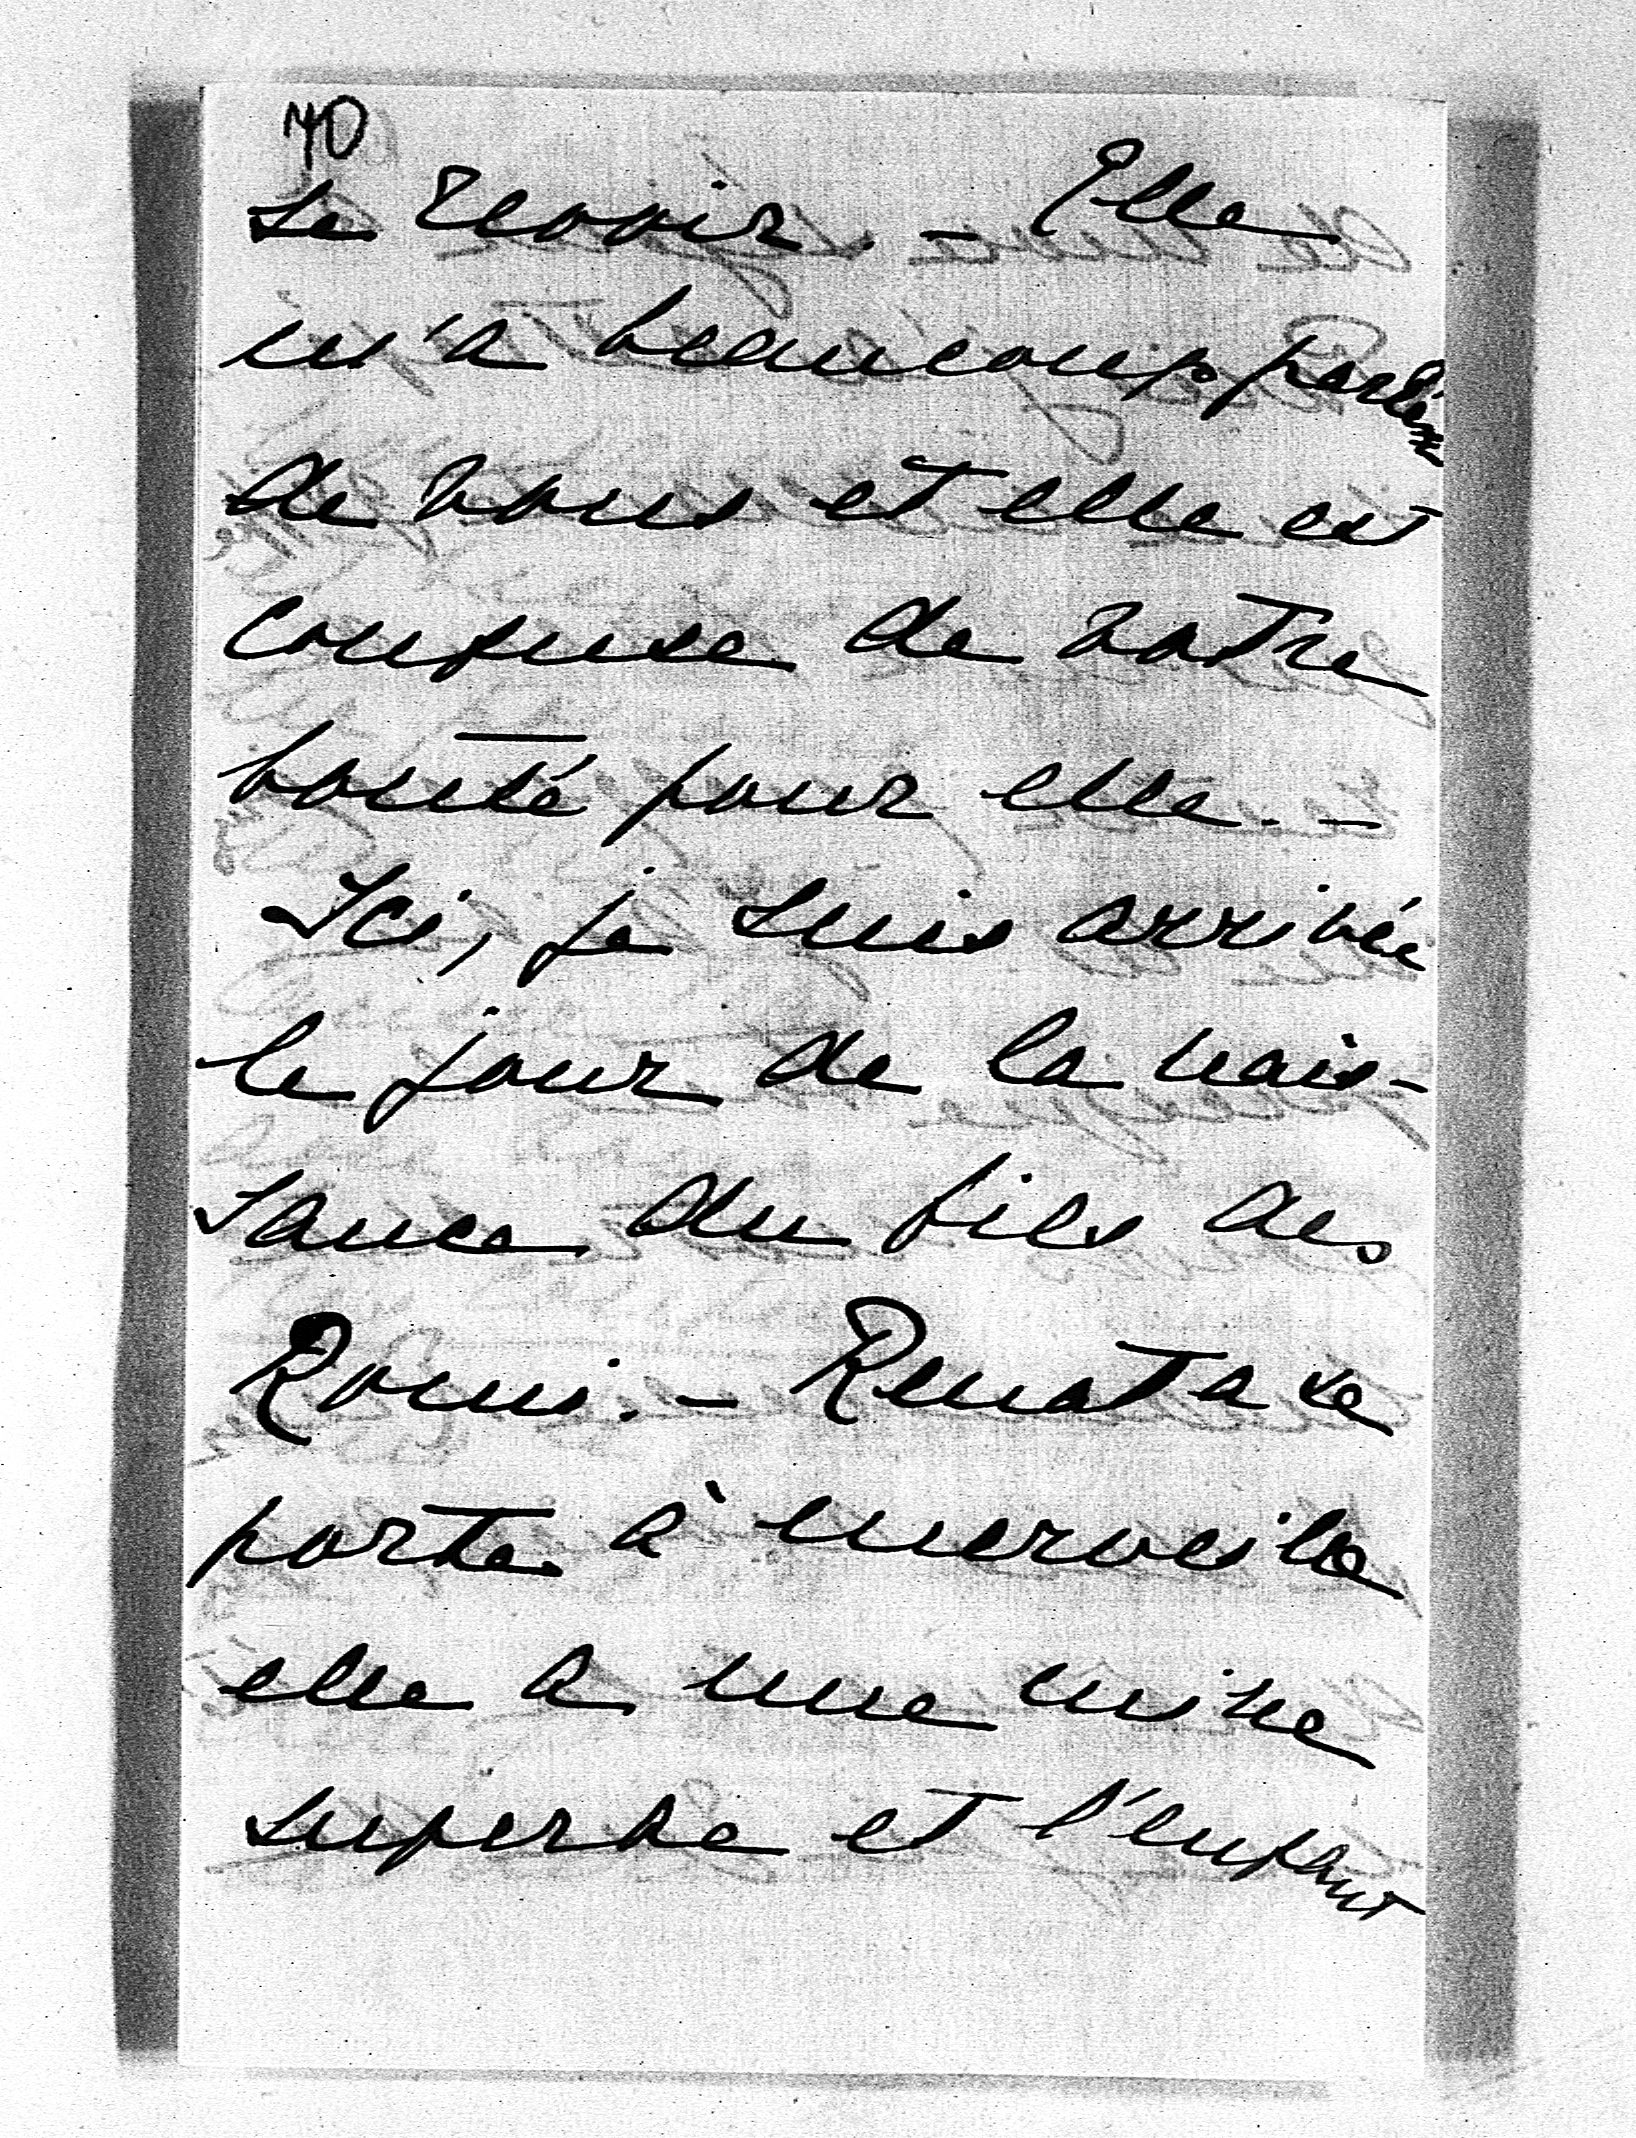 70
se revoir. - Elle
m'a beaucoup parlé
de vous et elle est
confuse de votre
bonté pour elle. -
Ici, je suis arrivée
le jour de la nais-
sance du fils des
Romi. - Renata se
porte à merveille
elle a une mine
superbe et l'enfant